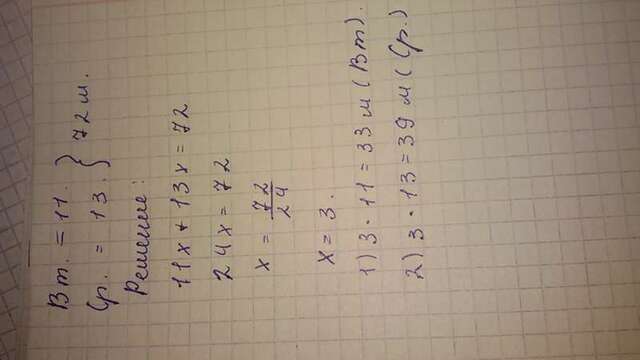 Вт. = 11. } 72 м.
Ср. = 13.
Решение:
11x + 13x = 72
24x = 72
x = 72/24
x = 3.
1) 3 · 11 = 33 м (Вт).
2) 3 · 13 = 39 м (Ср.)